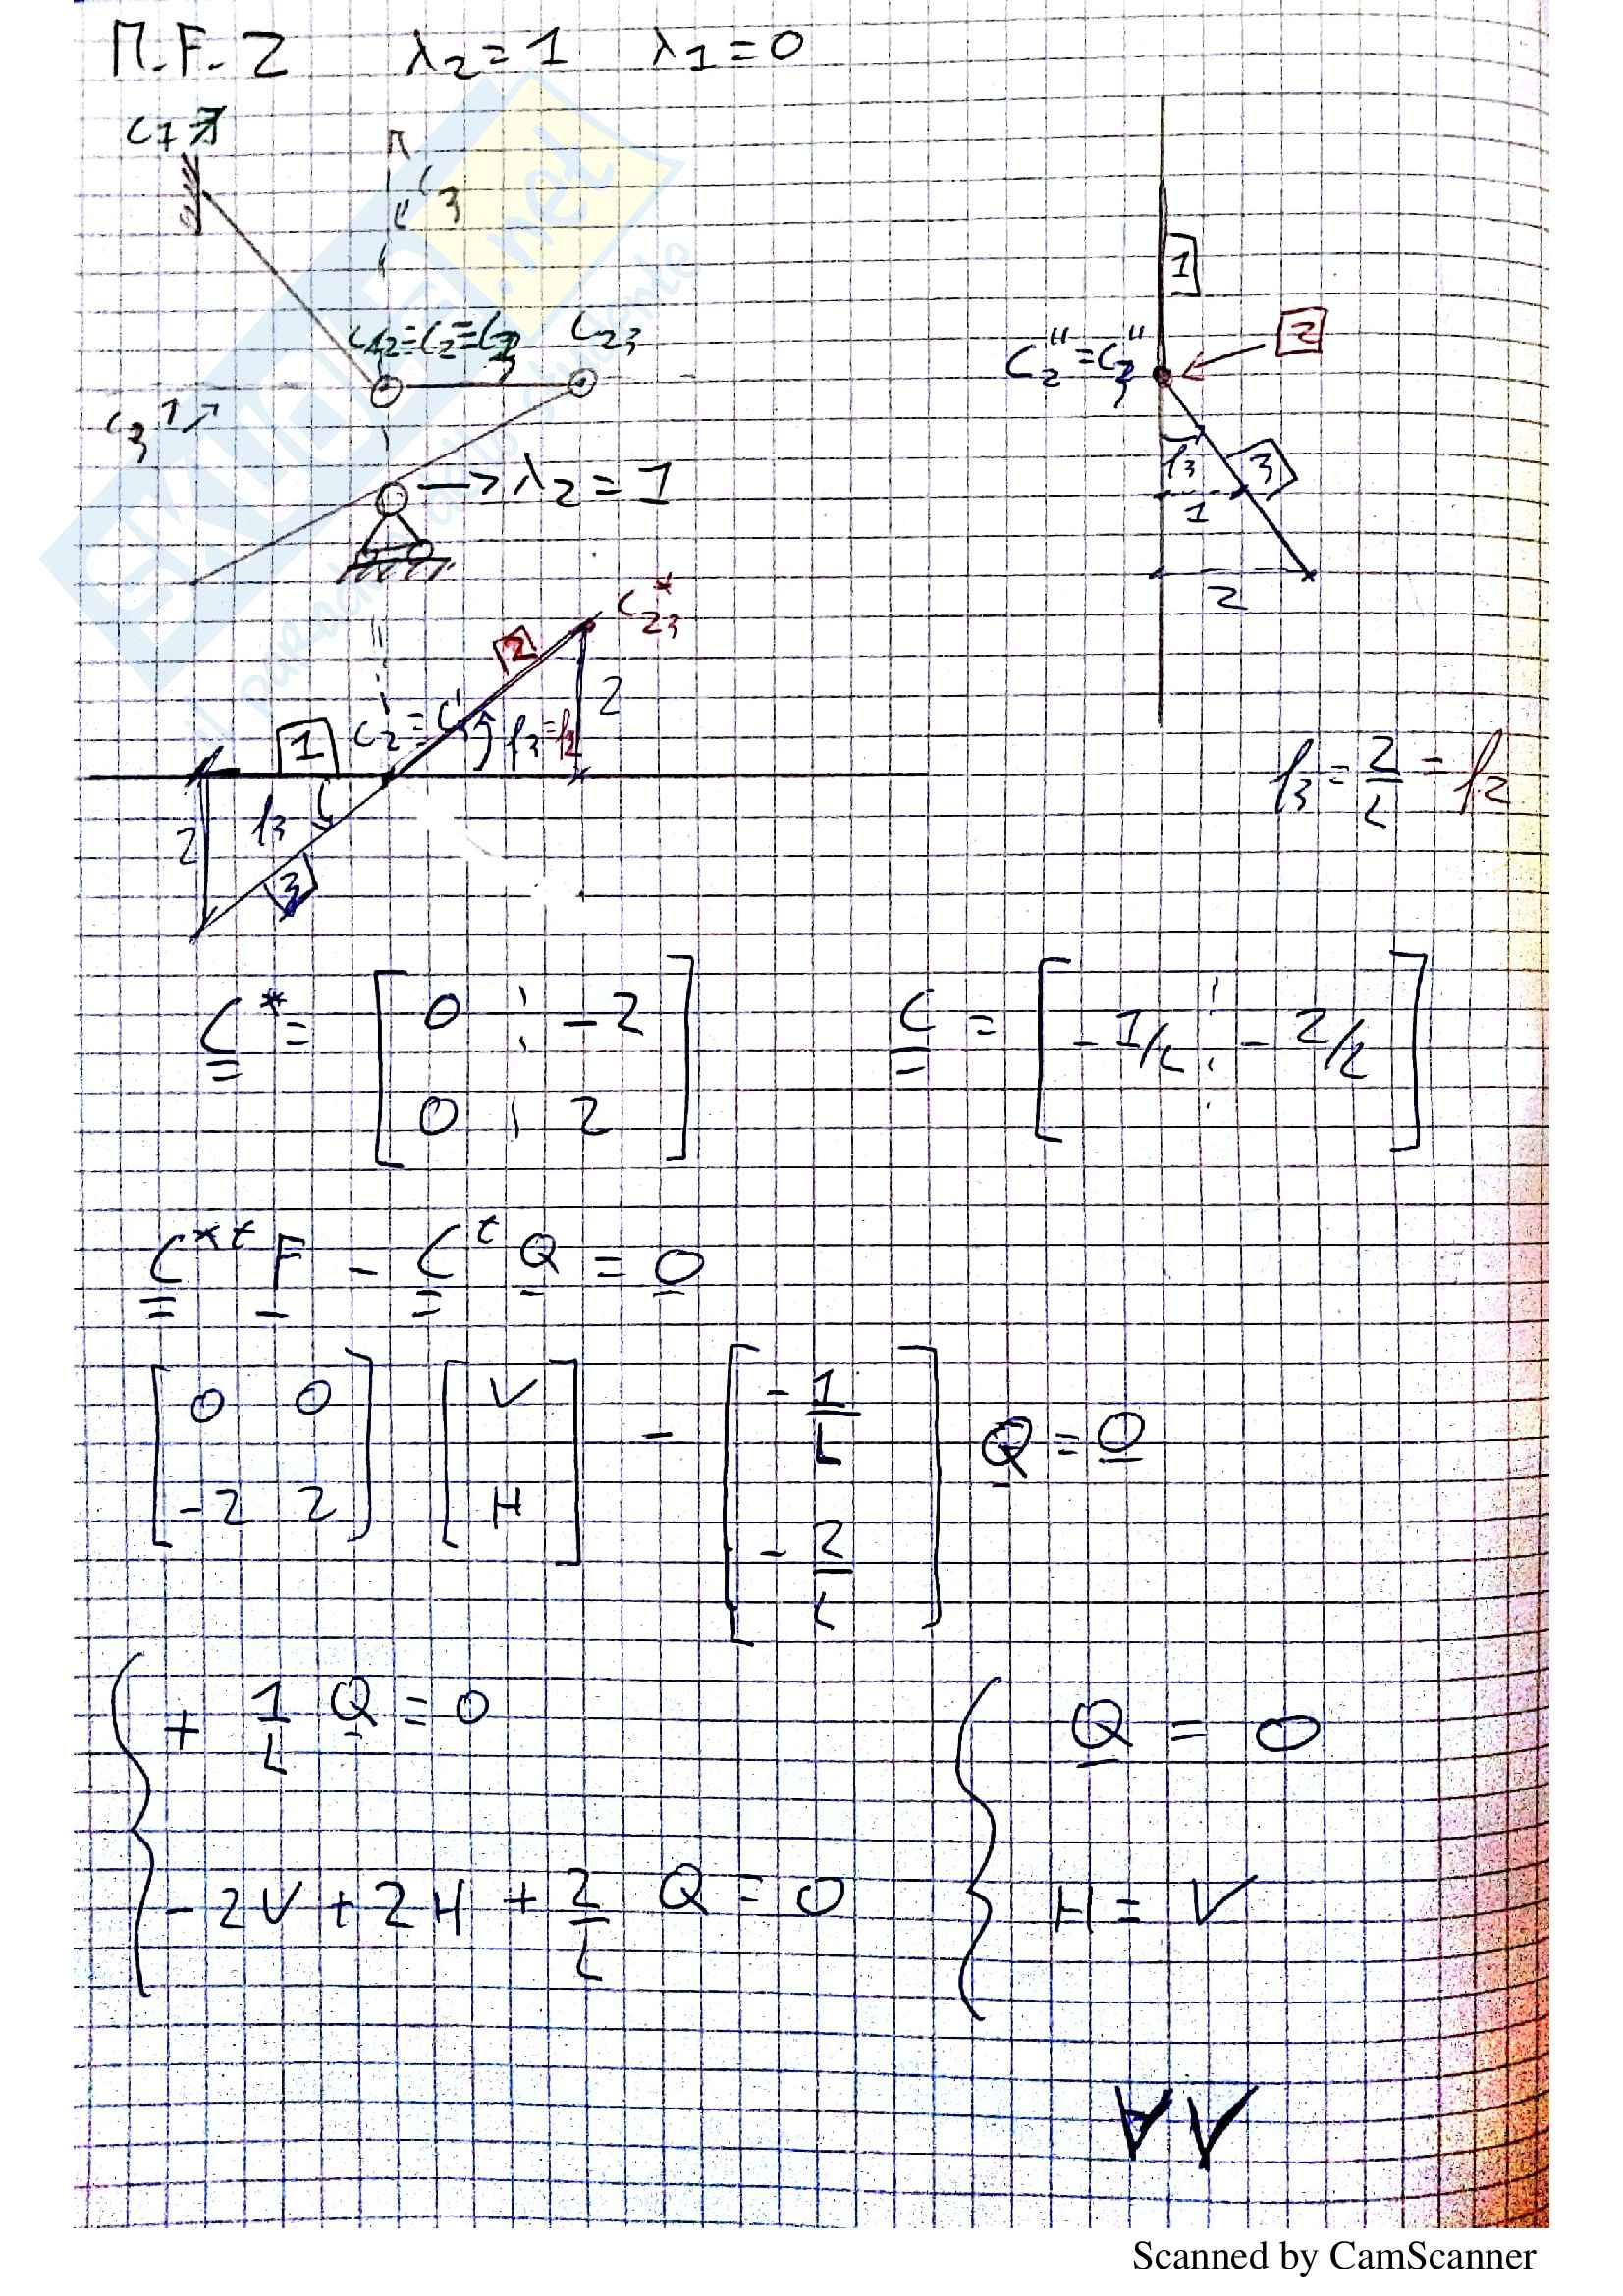 M.F.2 λ2=1 λ1=0
C1
C3
C12=C2=C3 C23
C3
→ λ2=1
1
C2''=C3'' 2
φ3 3
1
2
C23*
2
2
1 C2'=C3' φ3=φ2
φ3
2
3
φ3 = 2/L = φ2
C* = [ 0 ¦ -2
0 ¦ 2 ]
C = [ -1/L ¦ -2/L ]
C*t F - Ct Q = 0
[ 0 0
-2 2 ] [ V
H ] - [ -1/L
-2/L ] Q = 0
{ + 1/L Q = 0
-2V + 2H + 2/L Q = 0
{ Q = 0
H = V
∀ V
Scanned by CamScanner